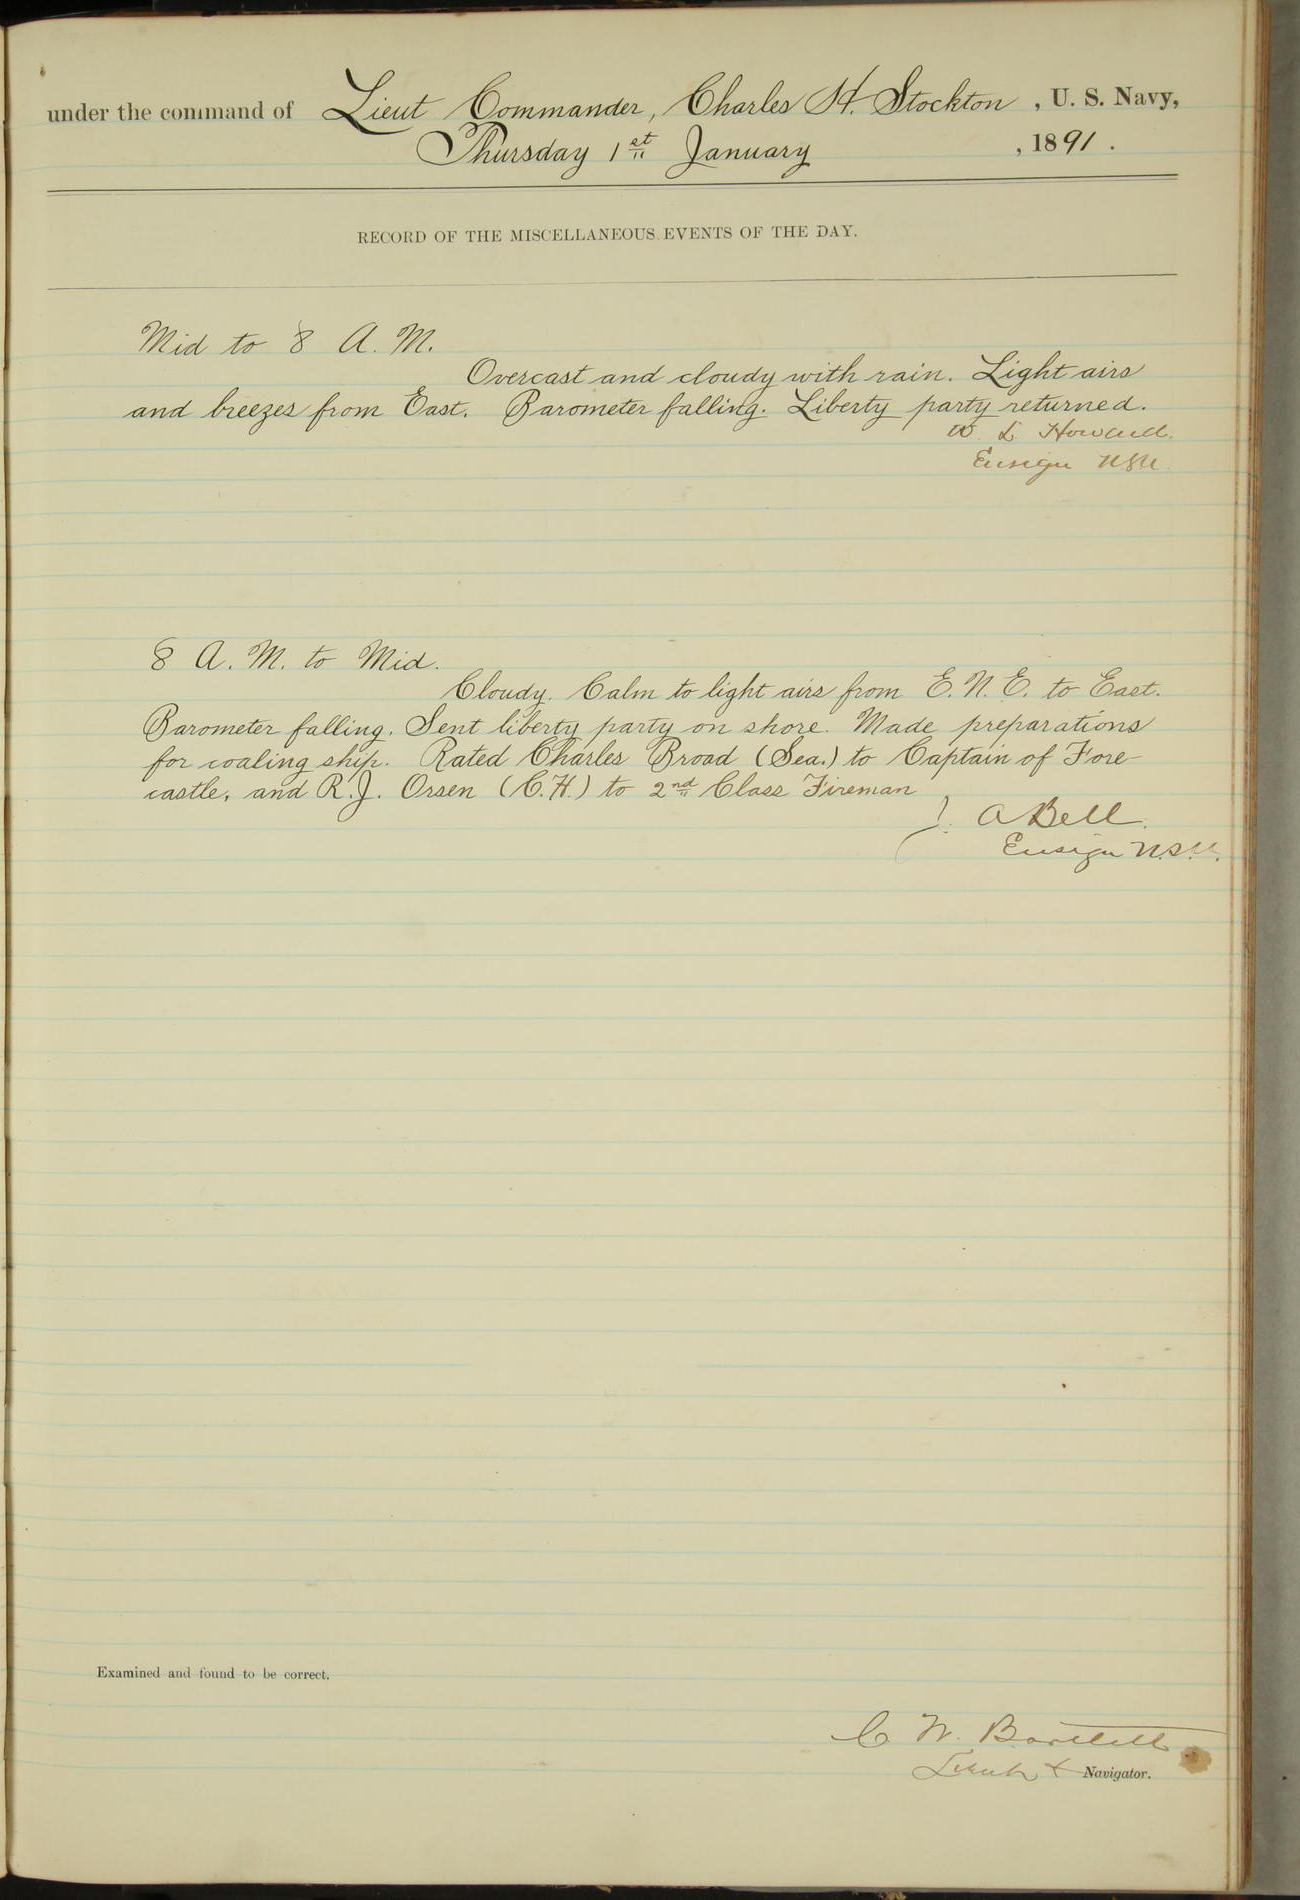 under the command of Lieut Commander, Charles H. Stockton, U. S. Navy,
Thursday 1st January, 1891.
RECORD OF THE MISCELLANEOUS EVENTS OF THE DAY.
Mid to 8 A. M.
Overcast and cloudy with rain. Light airs
and breezes from East. Barometer falling. Liberty party returned.
W. L. Howard.
Ensign USN.
8 A. M. to Mid.
Cloudy. Calm to light airs from E. N. E. to East.
Barometer falling. Sent liberty party on shore. Made preparations
for coaling ship. Rated Charles Broad (Sea.) to Captain of Fore-
castle, and R. J. Orsen (C.H.) to 2nd Class Fireman
J. A Bell.
Ensign U.S.N.
Examined and found to be correct.
C W. Bartlett
Lieut & Navigator.